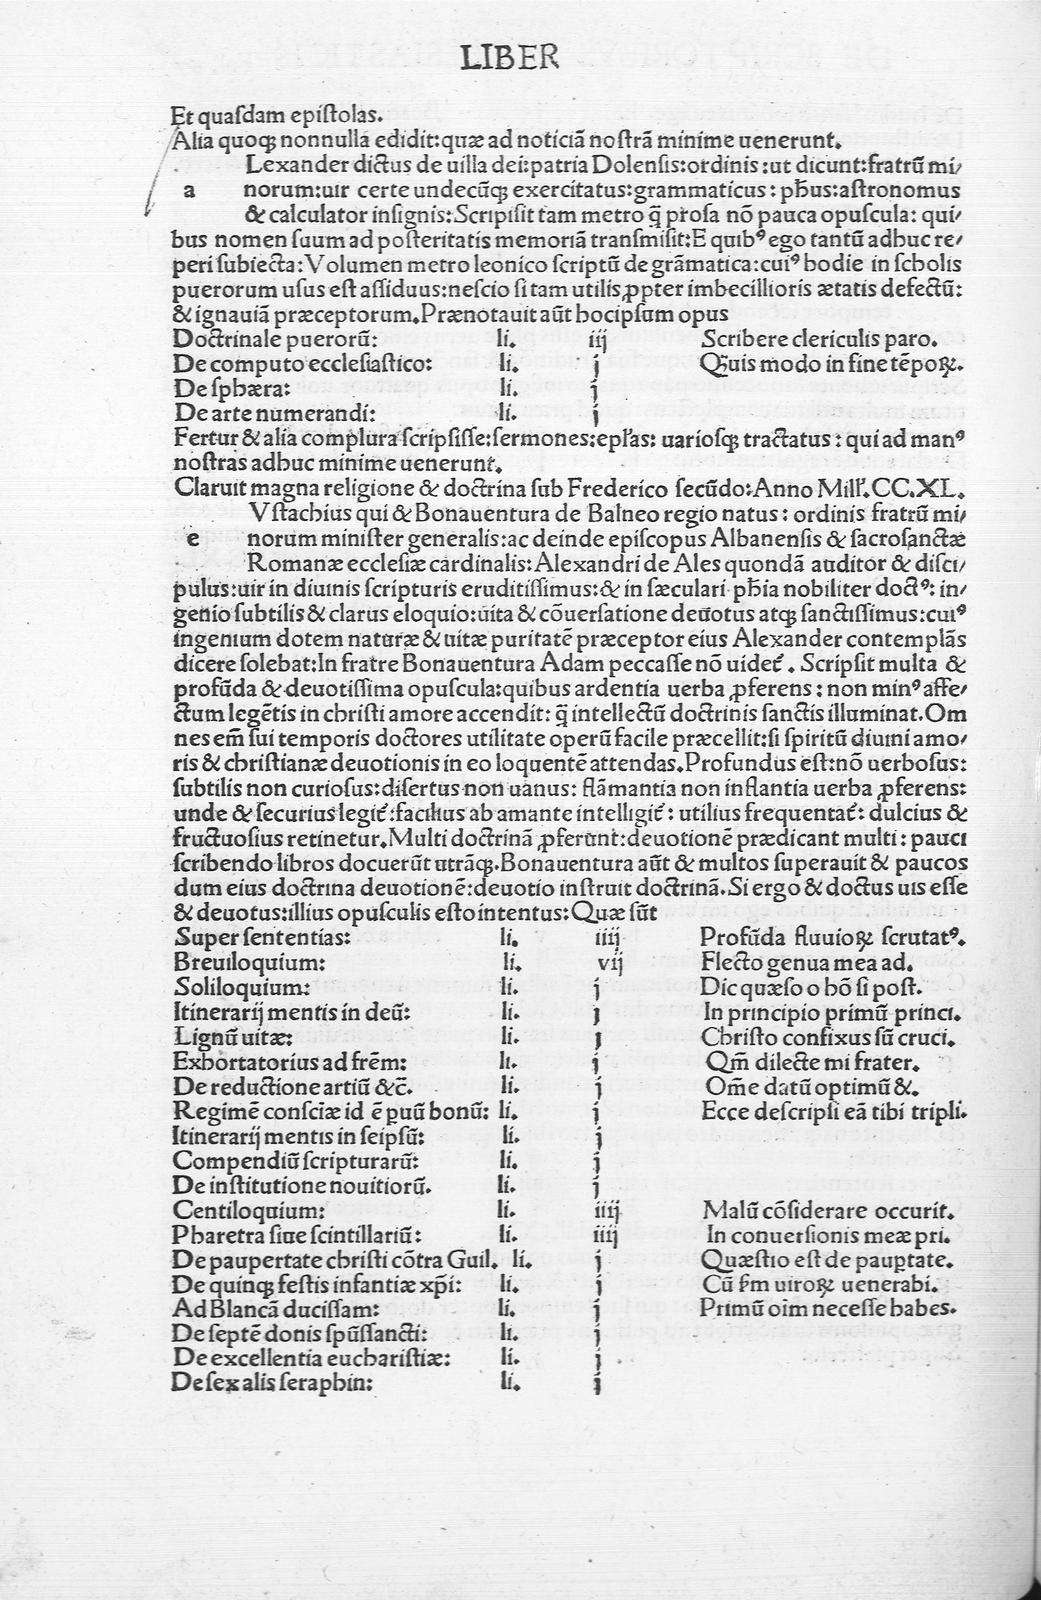 LIBER
Et quasdam epistolas.
Alia quoqꝫ nonnulla edidit:quæ ad noticiā nostrā minime uenerunt.
Lexander dictus de uilla dei:patria Dolensis:ordinis :ut dicunt:fratrū mi/
a norum:uir certe undecūqꝫ exercitatus:grammaticus : pħus:astronomus
& calculator insignis:Scripsit tam metro q̄ prosa nō pauca opuscula: qui/
bus nomen suum ad posteritatis memoriā transmisit:E quibꝰ ego tantū adhuc re/
peri subiecta:Volumen metro leonico scriptū de grāmatica:cuiꝰ hodie in scholis
puerorum usus est assiduus:nescio si tam utilis ꝓpter imbecillioris ætatis defectū:
& ignauiā præceptorum.Prænotauit aūt hocipsum opus
Doctrinale puerorū: li. iij Scribere clericulis paro.
De computo ecclesiastico: li. j Quis modo in fine tēpoꝝ.
De sphæra: li. j
De arte numerandi: li. j
Fertur & alia complura scripsisse:sermones:epłas: uariosqꝫ tractatus : qui ad manꝰ
nostras adhuc minime uenerunt.
Claruit magna religione & doctrina sub Frederico secūdo:Anno Mill'.CC.XL.
Vstachius qui & Bonauentura de Balneo regio natus : ordinis fratrū mi/
e norum minister generalis:ac deinde episcopus Albanensis & sacrosanctæ
Romanæ ecclesiæ cardinalis: Alexandri de Ales quondā auditor & disci/
pulus:uir in diuinis scripturis eruditissimus:& in sæculari phīa nobiliter doctꝰ: in/
genio subtilis & clarus eloquio:uita & cōuersatione deuotus atqꝫ sanctissimus:cuiꝰ
ingenium dotem naturæ & uitæ puritatē præceptor eius Alexander contemplās
dicere solebat:In fratre Bonauentura Adam peccasse nō uidet̉. Scripsit multa &
profūda & deuotissima opuscula:quibus ardentia uerba ꝓferens : non minꝰ affe/
ctum legētis in christi amore accendit: q̄ intellectū doctrinis sanctis illuminat.Om
nes em̄ sui temporis doctores utilitate operū facile præcellit:si spiritū diuini amo/
ris & christianæ deuotionis in eo loquentē attendas.Profundus est:nō uerbosus:
subtilis non curiosus:disertus non uanus: flāmantia non inflantia uerba ꝓferens:
unde & securius legit̉:facilius ab amante intelligit̉: utilius frequentat̉: dulcius &
fructuosius retinetur.Multi doctrinā ꝓferunt:deuotionē prædicant multi : pauci
scribendo libros docuerūt utrāqꝫ.Bonauentura aūt & multos superauit & paucos
dum eius doctrina deuotionē:deuotio instruit doctrinā.Si ergo & doctus uis esse
& deuotus:illius opusculis esto intentus:Quæ sūt
Super sententias: li. iiij Profūda fluuioꝝ scrutatꝰ.
Breuiloquium: li. vij Flecto genua mea ad.
Soliloquium: li. j Dic quæso o hō si post.
Itinerarij mentis in deū: li. j In principio primū princi.
Lignū uitæ: li. j Christo confixus sū cruci.
Exhortatorius ad frēm: li. j Qm̄ dilecte mi frater.
De reductione artiū &c̄. li. j Om̄e datū optimū &.
Regimē consciæ id ē puū bonū: li. j Ecce descripsi eā tibi tripli.
Itinerarij mentis in seipsū: li. j
Compendiū scripturarū: li. j
De institutione nouitiorū. li. j
Centiloquium: li. iiij Malū cōsiderare occurit.
Pharetra siue scintillariū: li. iiij In conuersionis meæ pri.
De paupertate christi cōtra Guil. li. j Quæstio est de paup̄tate.
De quinqꝫ festis infantiæ xp̄i: li. j Cū s̄m uiroꝝ uenerabi.
Ad Blancā ducissam: li. j Primū oim necesse habes.
De septē donis spūssancti: li. j
De excellentia eucharistiæ: li. j
De sex alis seraphin: li. j